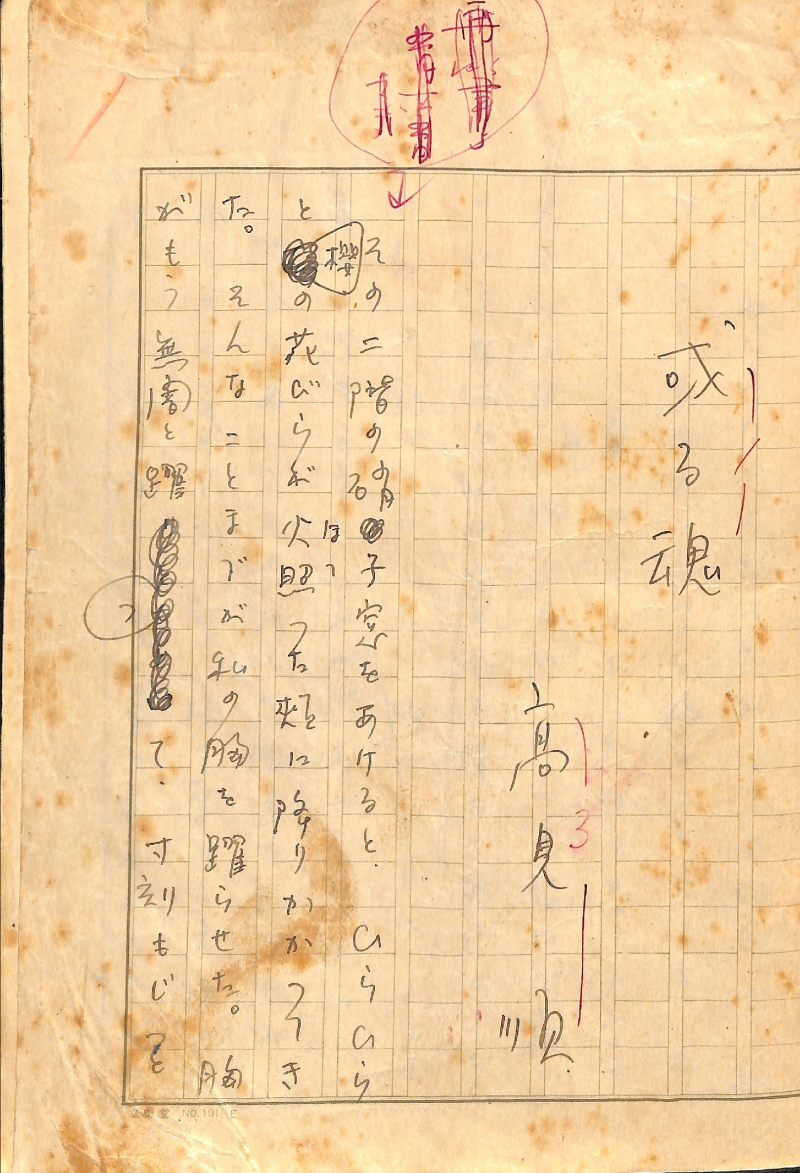 或る魂
高見順
その二階の硝子窓をあけると、ひらひら
と櫻の花びらが火照った頰に降りかかってき
ほて
た。そんなことまでが私の胸を躍らせた。胸
がもう無闇と躍って、寸刻もじっと
3
NO.101 E